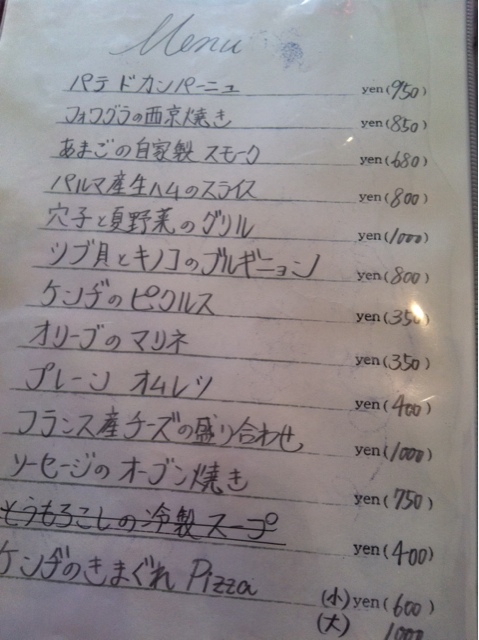 Menu
パテ ド カンパーニュ yen(950)
フォワグラの西京焼き yen(850)
あまごの自家製 スモーク yen(680)
パルマ産生ハムのスライス yen(800)
穴子と夏野菜のグリル yen(1000)
ツブ貝とキノコのブルギニョン yen(800)
ケンヂのピクルス yen(350)
オリーブのマリネ yen(350)
プレーン オムレツ yen(400)
フランス産チーズの盛り合わせ yen(1000)
ソーセージのオーブン焼き yen(750)
とうもろこしの冷製スープ yen(400)
ケンヂのきまぐれ Pizza (小)yen(600)
(大) 1000